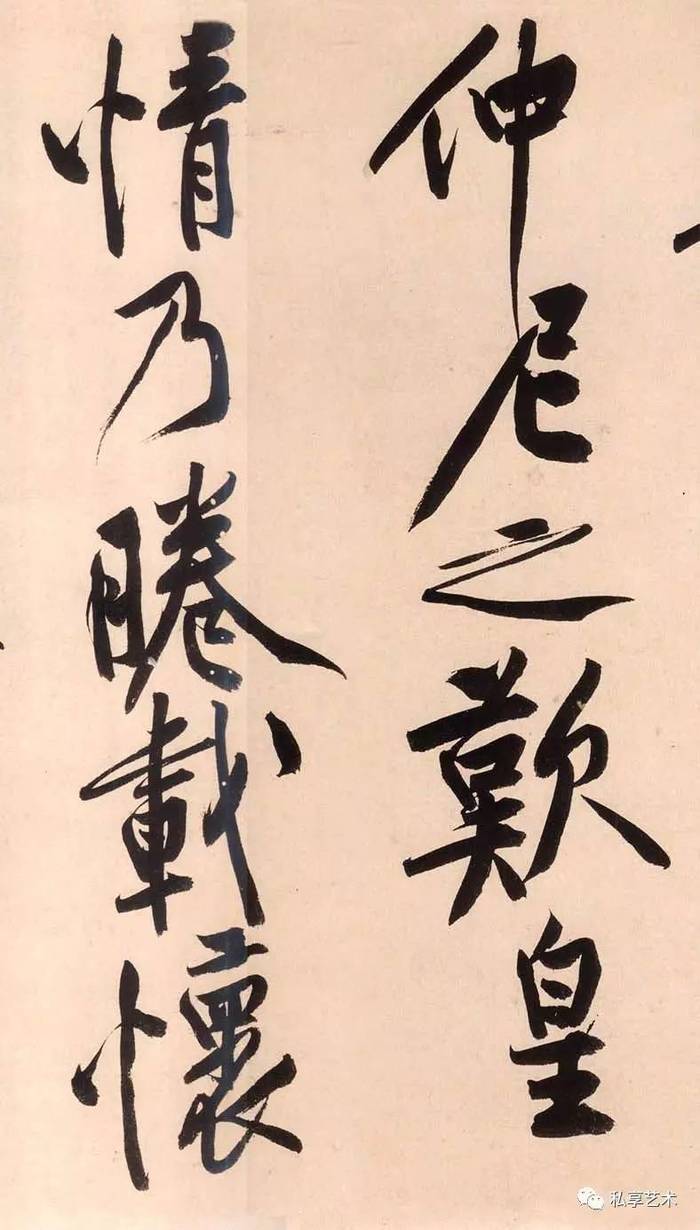 仲尼之歎皇
情乃睠載懷
私享艺术